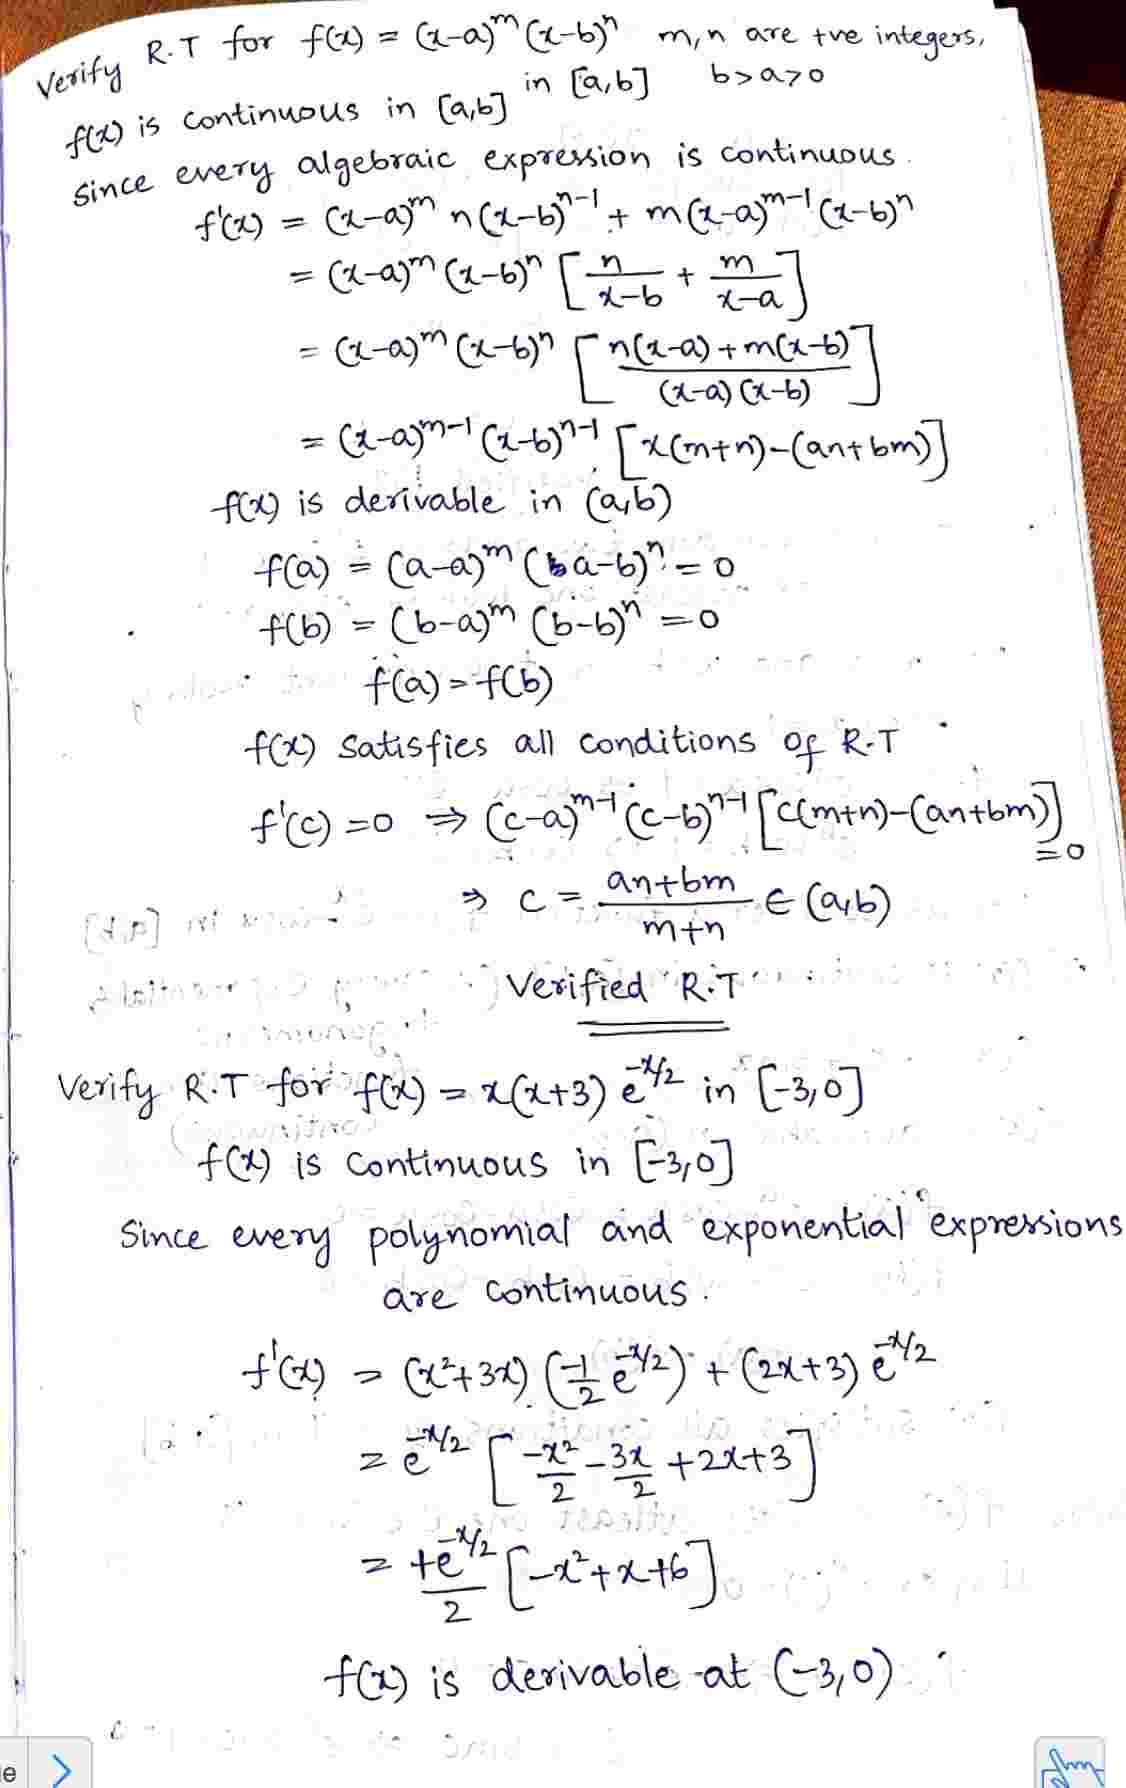 Verify R.T for f(x) = (x-a)^m (x-b)^n m,n are +ve integers,
in [a,b] b>a>0
f(x) is continuous in [a,b]
since every algebraic expression is continuous.
f'(x) = (x-a)^m n(x-b)^n-1 + m(x-a)^m-1 (x-b)^n
= (x-a)^m (x-b)^n [n/x-b + m/x-a]
= (x-a)^m (x-b)^n [n(x-a)+m(x-b)/(x-a)(x-b)]
= (x-a)^m-1 (x-b)^n-1 [x(m+n)-(an+bm)]
f(x) is derivable in (a,b)
f(a) = (a-a)^m (a-b)^n = 0
f(b) = (b-a)^m (b-b)^n = 0
f(a) = f(b)
f(x) satisfies all conditions of R.T
f'(c) = 0 ⇒ (c-a)^m-1 (c-b)^n-1 [c(m+n)-(an+bm)] = 0
⇒ c = an+bm/m+n ∈ (a,b)
Verified R.T
Verify R.T for f(x) = x(x+3) e^-x/2 in [-3,0]
f(x) is continuous in [-3,0]
Since every polynomial and exponential expressions
are continuous.
f'(x) = (x²+3x) (-1/2 e^-x/2) + (2x+3) e^-x/2
= e^-x/2 [-x²/2 - 3x/2 + 2x+3]
= +e^-x/2/2 [-x²+x+6]
f(x) is derivable at (-3,0)
e